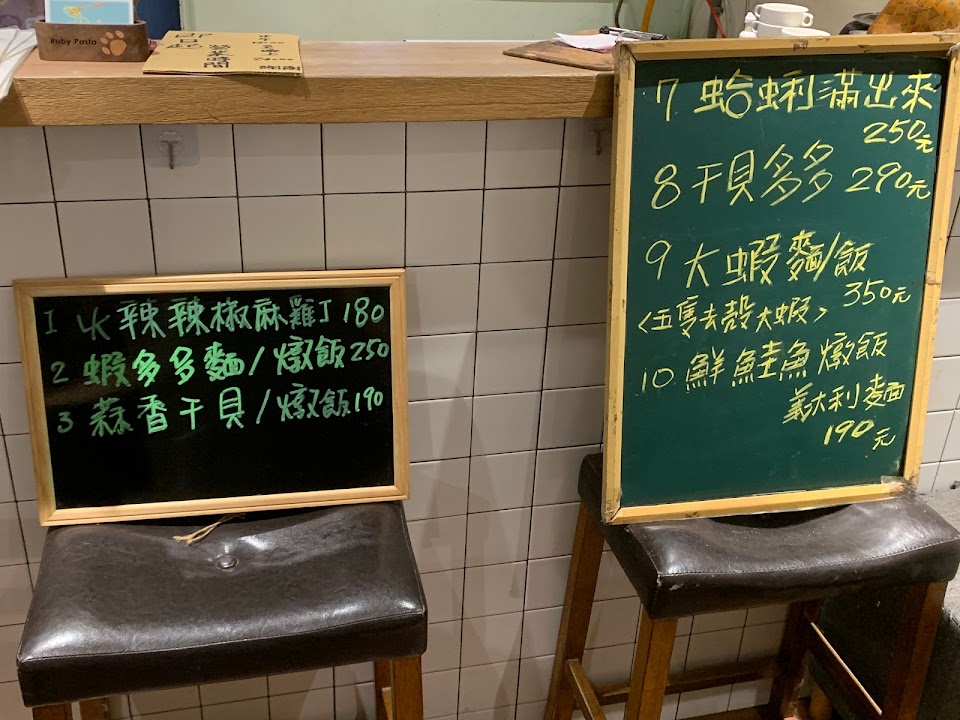 Ruby Pasta
營業時間
1 火辣辣椒麻雞丁 180
2 蝦多多麵/燉飯 250
3 蒜香干貝/燉飯 190
7 蛤蜊滿出來
250元
8 干貝多多 290元
9 大蝦麵/飯
350元
<五隻去殼大蝦>
10. 鮮鮭魚燉飯
義大利麵
190元